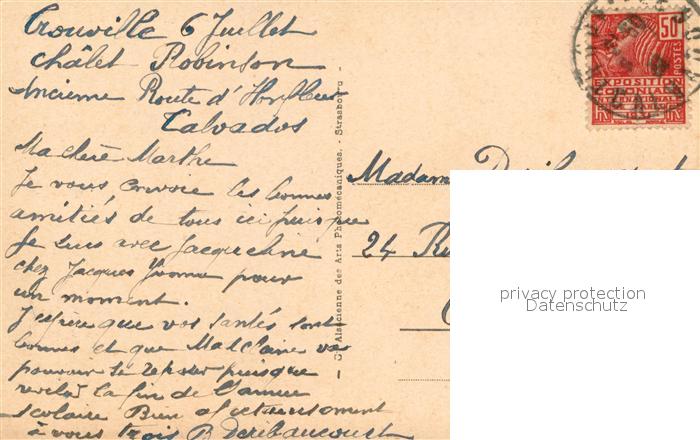 Trouville 6 Juillet
châlet Robinson
Ancienne Route d'Honfleur
Calvados
Ma chère Marthe
Je vous envoie les bonnes
amitiés de tous ici puisque
je suis avec Jacqueline
chez Jacques Yvonne pour
un moment.
J'espère que vos santés sont
bonnes et que Madeleine va
pouvoir se reposer puisque
voilà la fin de l'année
scolaire Bien affectueusement
à vous trois B Deribaucourt
C.ie Alsacienne des Arts Photomécaniques. - Strasbourg
50c
POSTES
EXPOSITION
COLONIALE
INTERNATIONALE
PARIS 1931
Madame
24 Ru
privacy protection
Datenschutz